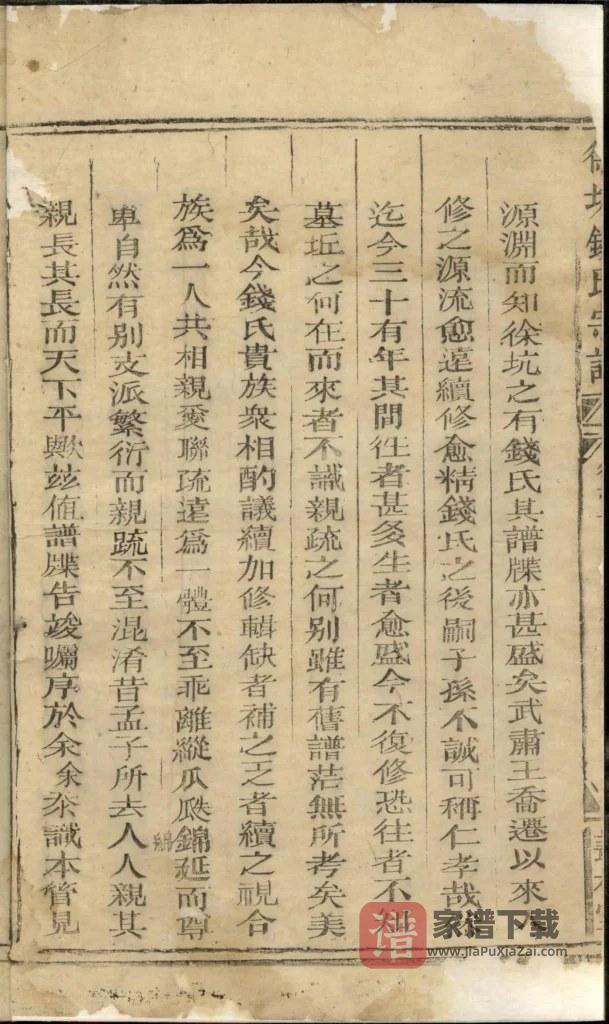 徐坑錢氏宗譜
源淵而知徐坑之有錢氏其譜牒亦甚盛矣武肅王喬遷以來
修之源流愈遠續修愈精錢氏之後嗣子孫不誠可稱仁孝哉
迄今三十有年其間往者甚多生者愈盛今不復修恐往者不知
墓坵之何在而來者不識親疏之何别雖有舊譜茫無所考矣美
矣哉今錢氏貴族衆相酌議續加修輯缺者補之乏者續之視合
族爲一人共相親愛聯疏遠爲一體不至乖離縱瓜瓞錦延而尊
綿
卑自然有别支派繁衍而親疏不至混淆昔孟子所去人人親其
親長其長而天下平歟兹值譜牒告竣囑序於余余忝識本管見
譜 家谱下载
www.jiaPuXiaZai.com